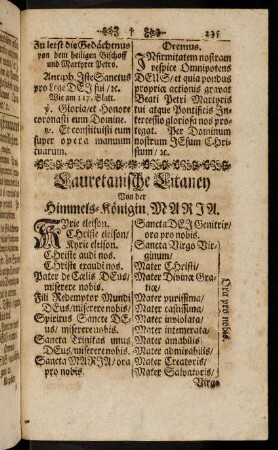 235
Zu leest die Gedächtnus
von dem heiligen Bischoff
und Martyrer Petro.
Antiph. Iste Sanctus
pro Lege DEI sui / ꝛc.
Wie am 117. Blatt.
℣. Gloria et Honore
coronasti eum Domine.
℟. Et constituisti eum
super opera manuum
tuarum.
Oremus.
INfirmitatem nostram
respice Omnipotens
DEUS / et quia pondus
propriæ actionis gravat
Beati Petri Martyris
tui atque Pontificis In-
tercessio gloriosa nos pro-
tegat. Per Dominum
nostrum JEsum CHri-
stum / ꝛc.
Lauretanische Litaney
Von der
Himmels-Königin, MARIA.
KYrie eleison.
CHriste eleison.
Kyrie eleison.
CHriste audi nos.
CHriste exaudi nos.
Pater de Cœlis DEus/
miserere nobis.
Fili Redemptor Mundi
DEus/miserere nobis.
Spiritus Sancte DE-
us/ miserere nobis.
Sancta Trinitas unus
DEus/miserere nobis.
Sancta MARIA/ ora
pro nobis.
Sancta DEI Genitrix/
ora pro nobis.
Sancta Virgo Vir-
ginum/
Mater CHristi/
Mater Divinæ Gra-
tiæ/
Mater purissima/
Mater castissima/
Mater inviolata/
Mater intemerata/
Mater amabilis/
Mater admirabilis/
Mater Creatoris/
Mater Salvatoris/
Ora pro nobis.
Virgo